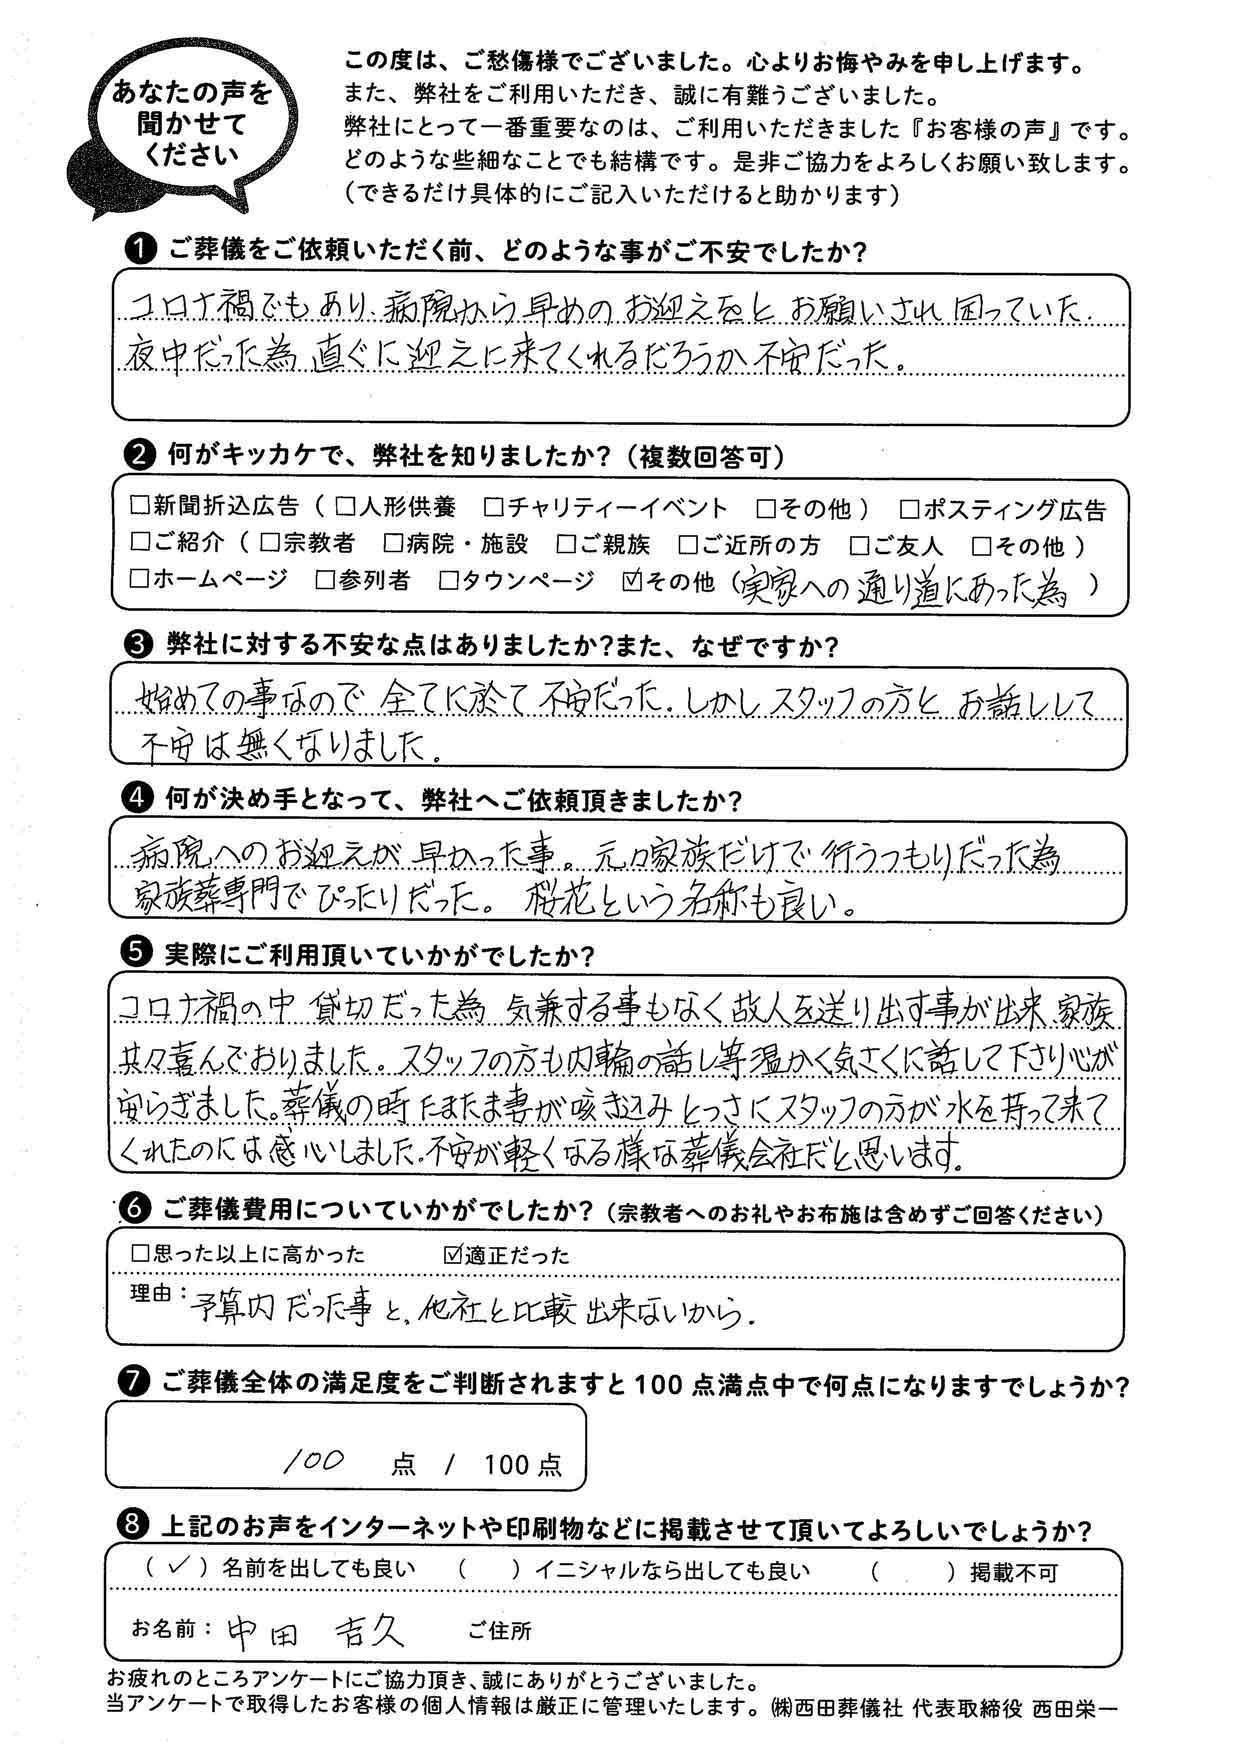 あなたの声を
聞かせて
ください
この度は、ご愁傷様でございました。心よりお悔やみを申し上げます。
また、弊社をご利用いただき、誠に有難うございました。
弊社にとって一番重要なのは、ご利用いただきました『お客様の声』です。
どのような些細なことでも結構です。是非ご協力をよろしくお願い致します。
（できるだけ具体的にご記入いただけると助かります）
❶ ご葬儀をご依頼いただく前、どのような事がご不安でしたか?
コロナ禍でもあり、病院から早めのお迎えをとお願いされ困っていた.
夜中だった為直ぐに迎えに来てくれるだろうか不安だった。
❷ 何がキッカケで、弊社を知りましたか?（複数回答可）
□新聞折込広告（ □人形供養 □チャリティーイベント □その他 ） □ポスティング広告
□ご紹介（ □宗教者 □病院・施設 □ご親族 □ご近所の方 □ご友人 □その他 ）
□ホームページ □参列者 □タウンページ ☑その他（実家への通り道にあった為 ）
❸ 弊社に対する不安な点はありましたか?また、なぜですか?
始めての事なので 全てに於て 不安だった. しかしスタッフの方と お話しして
不安は無くなりました.
❹ 何が決め手となって、弊社へご依頼頂きましたか?
病院へのお迎えが早かった事。元々家族だけで行うつもりだった為
家族葬専門でぴったりだった。 桜花という名称も良い。
❺ 実際にご利用頂いていかがでしたか?
コロナ禍の中 貸切だった為 気兼する事もなく故人を送り出す事が出来 家族
共々喜んでおりました。スタッフの方も内輪の話し等温かく気さくに話して下さり心が
安らぎました。葬儀の時たまたま妻が咳き込みとっさにスタッフの方が水を持って来て
くれたのには感心しました.不安が軽くなる様な葬儀会社だと思います.
❻ ご葬儀費用についていかがでしたか?（宗教者へのお礼やお布施は含めずご回答ください）
□思った以上に高かった ☑適正だった
理由：予算内だった事と、他社と比較出来ないから.
❼ ご葬儀全体の満足度をご判断されますと100点満点中で何点になりますでしょうか?
100 点 / 100点
❽ 上記のお声をインターネットや印刷物などに掲載させて頂いてよろしいでしょうか?
（ ✓ ）名前を出しても良い （ ）イニシャルなら出しても良い （ ）掲載不可
お名前：中田 吉久 ご住所
お疲れのところアンケートにご協力頂き、誠にありがとうございました。
当アンケートで取得したお客様の個人情報は厳正に管理いたします。㈱西田葬儀社 代表取締役 西田栄一